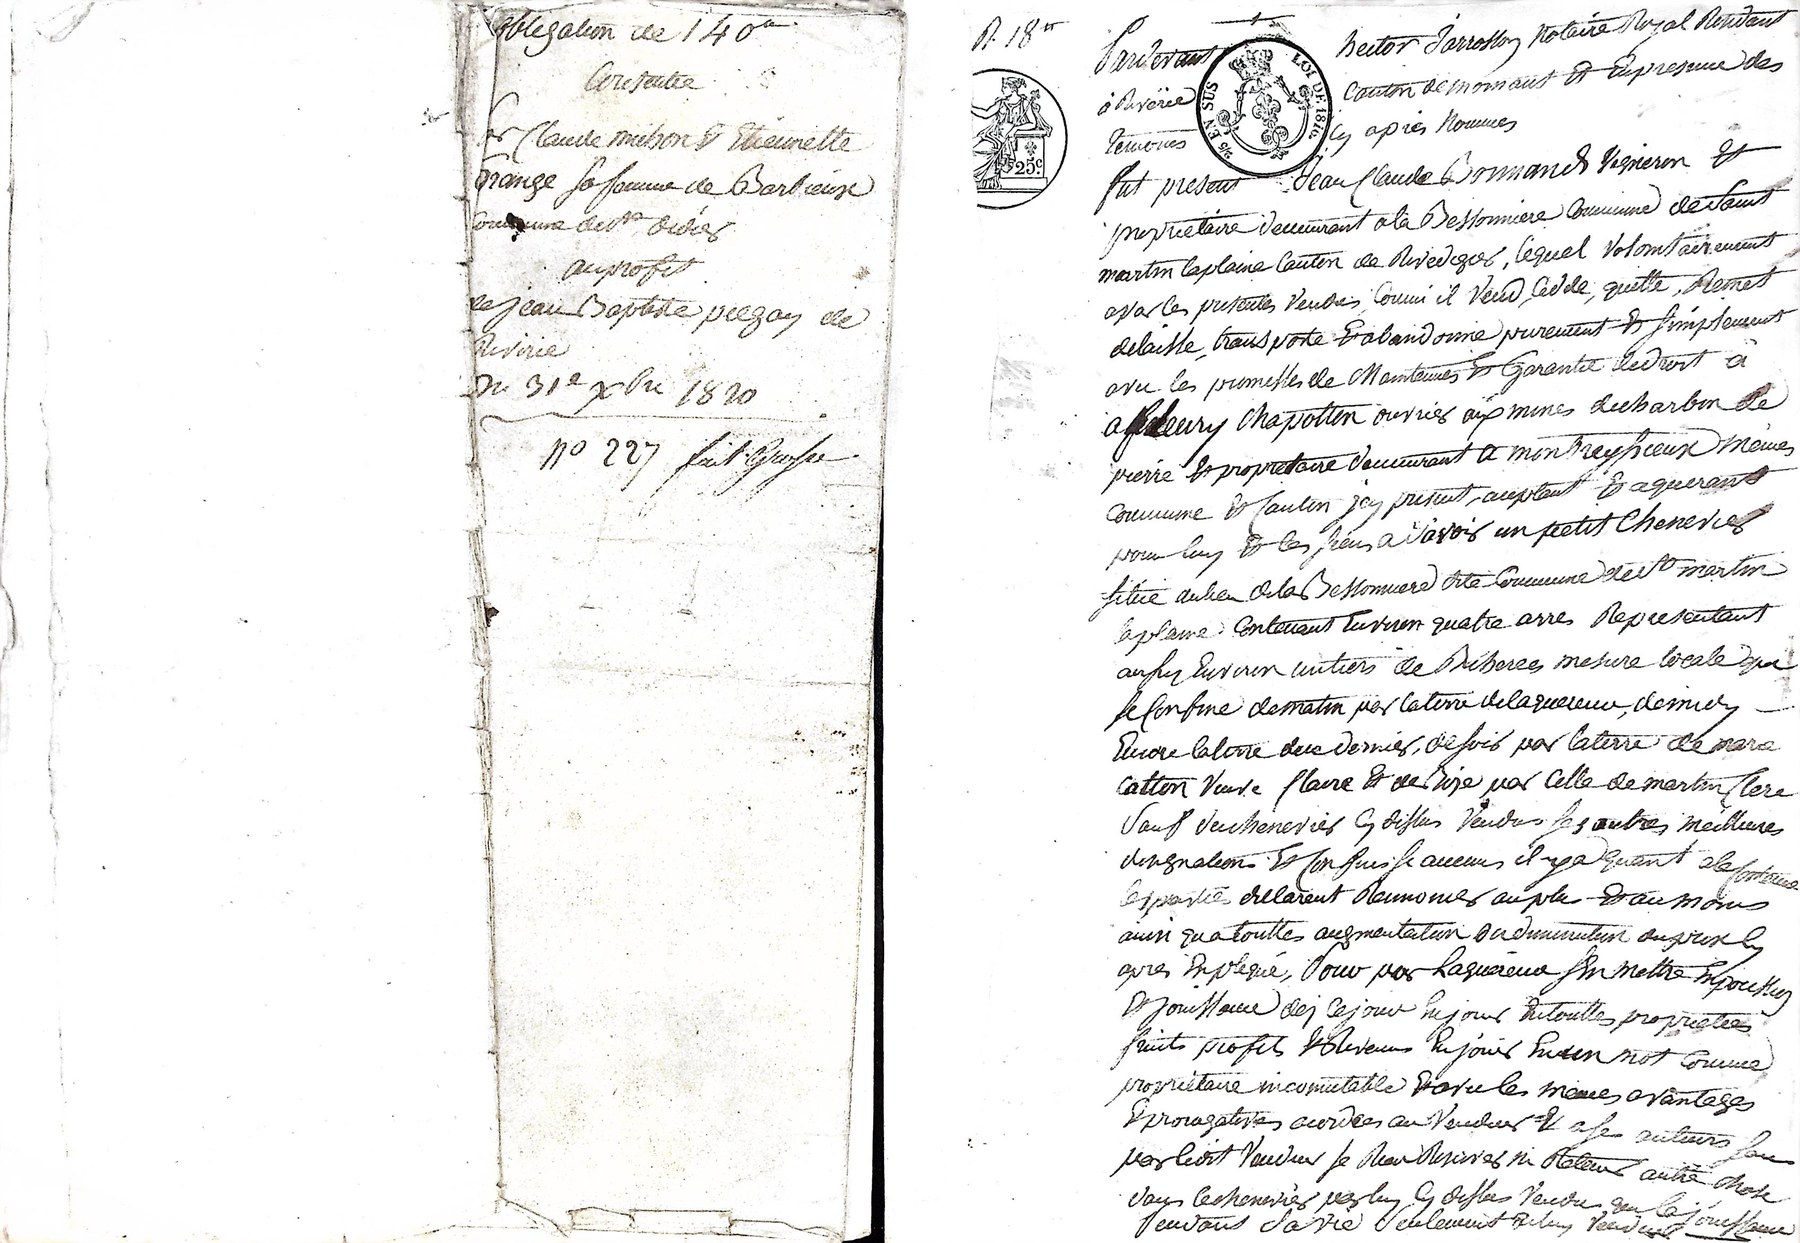 obligation de 140 tt
Consentie
Par Claude mihon & Etiennette
Grange sa femme de Barbieux
Commune de St didier
au profit
de jean Baptiste piegay de
Riverie
Du 31e xbre 1820
No 227 fait Grosse
R. 18 tt
25c.
EN SUS
LOI DE 1816.
Pardevant hector Jarrosson Notaire Royal Residant
à Riverie Canton de mornant Et En presence des
temoins Cy apres Nommés
fut present Jean Claude Bonnand Vigneron Et
proprietaire demeurant a la Bessonniere Commune de Saint
martin laplaine Canton de Rivedegier, lequel Volontairement
a par les presentes Vendu, Comme il Vend, Cedde, quitte, Remet
delaisse, transporte Et abandonne purement Et simplement
avec les promesses de Maintenues Et Garantie de droit à
a fleury Chapotton ouvrier aux mines de charbon de
pierre Et proprietaire demeurant a montreyssieux mêmes
Commune Et Canton jcy present, acceptant Et aquerant
pour luy Et les siens a Savoir un petit Chenevier
situé au lieu de la Bessonniere dite Commune de St martin
laplaine Contenant Environ quatre arres Representant
aussy Environ un tiers de Bicherée mesure locale qui
se Confine de matin par la terre de laquereur, de midy
Encore la terre du dernier, de soir par la terre de marie
Catton Veuve Claire Et de Bize par Celle de martin Clere
Sauf du chenevier Cy dessus Vendu ses autres meilleures
designations Et Confins se aucuns il y a quant a la Contenue
les parties declarent Renoncer au plus Et au moins
ainsi qua touttes augmentation ou diminution du prix Cy
apres Expliqué, Pour par Laquereur s'En mettre En possession
Et jouissance des ce jour En jouir En touttes proprietées
fruits profits Et Revenus En jouir En un mot Comme
proprietaire incomutable Et avec les memes avantages
Et prerogatives acordées au Vendeur Et a ses auteurs sans
par ledit Vendeur se Rien Reserver ni Retenir autre chose
dans le chenevier par luy Cy dessus Vendu que la jouissance
Pendant Sa Vie Seulement